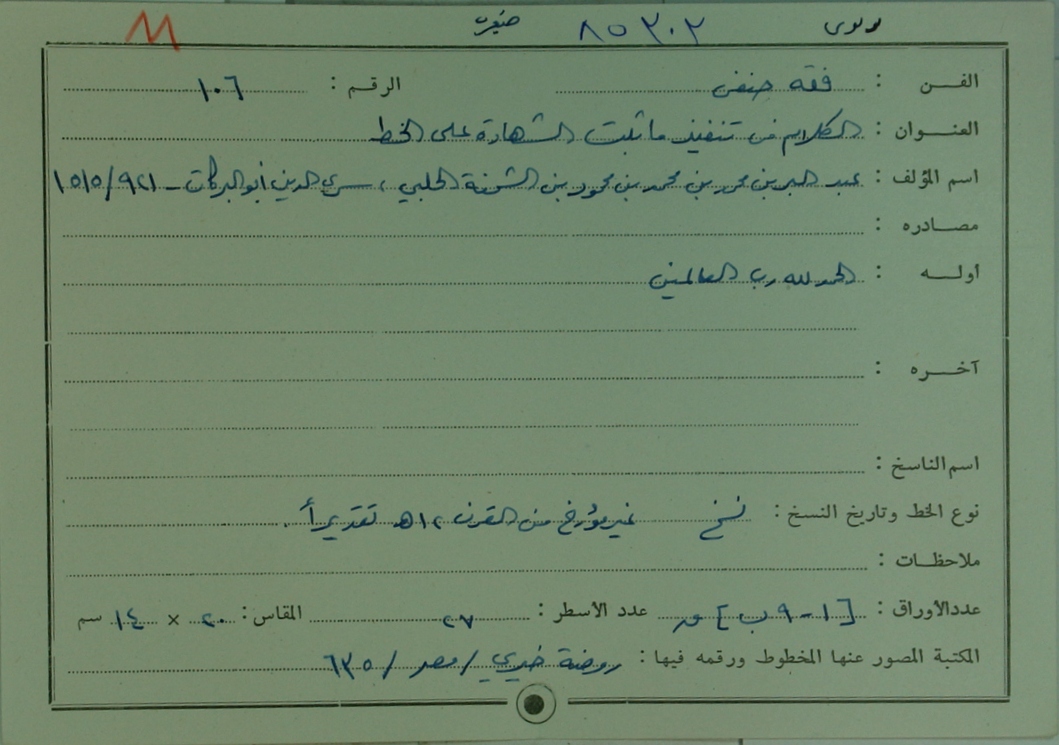 ٨٥٣٠٢
الفن : فقه حنفي الرقم : ١٠٦
العنوان : الكلام في تنفيذ ما ثبت الشهادة على الخط
اسم المؤلف : عبد البر بن محمد بن محمد بن محمود بن الشحنة الحلبي ، سري الدين أبو البركات - ٩٢١/١٥١٥
مصادره :
أوله : الحمد لله رب العالمين
آخره :
اسم الناسخ :
نوع الخط وتاريخ النسخ : نسخ غير مؤرخ من القرن ١٢هـ تقديراً .
ملاحظات :
عدد الأوراق : [١-٩ب] ق عدد الأسطر : ٢٧ المقاس : ٢٠ × ١٤ سم
المكتبة المصور عنها المخطوط ورقمه فيها : روضة خيري / مصر / ٦٣٥